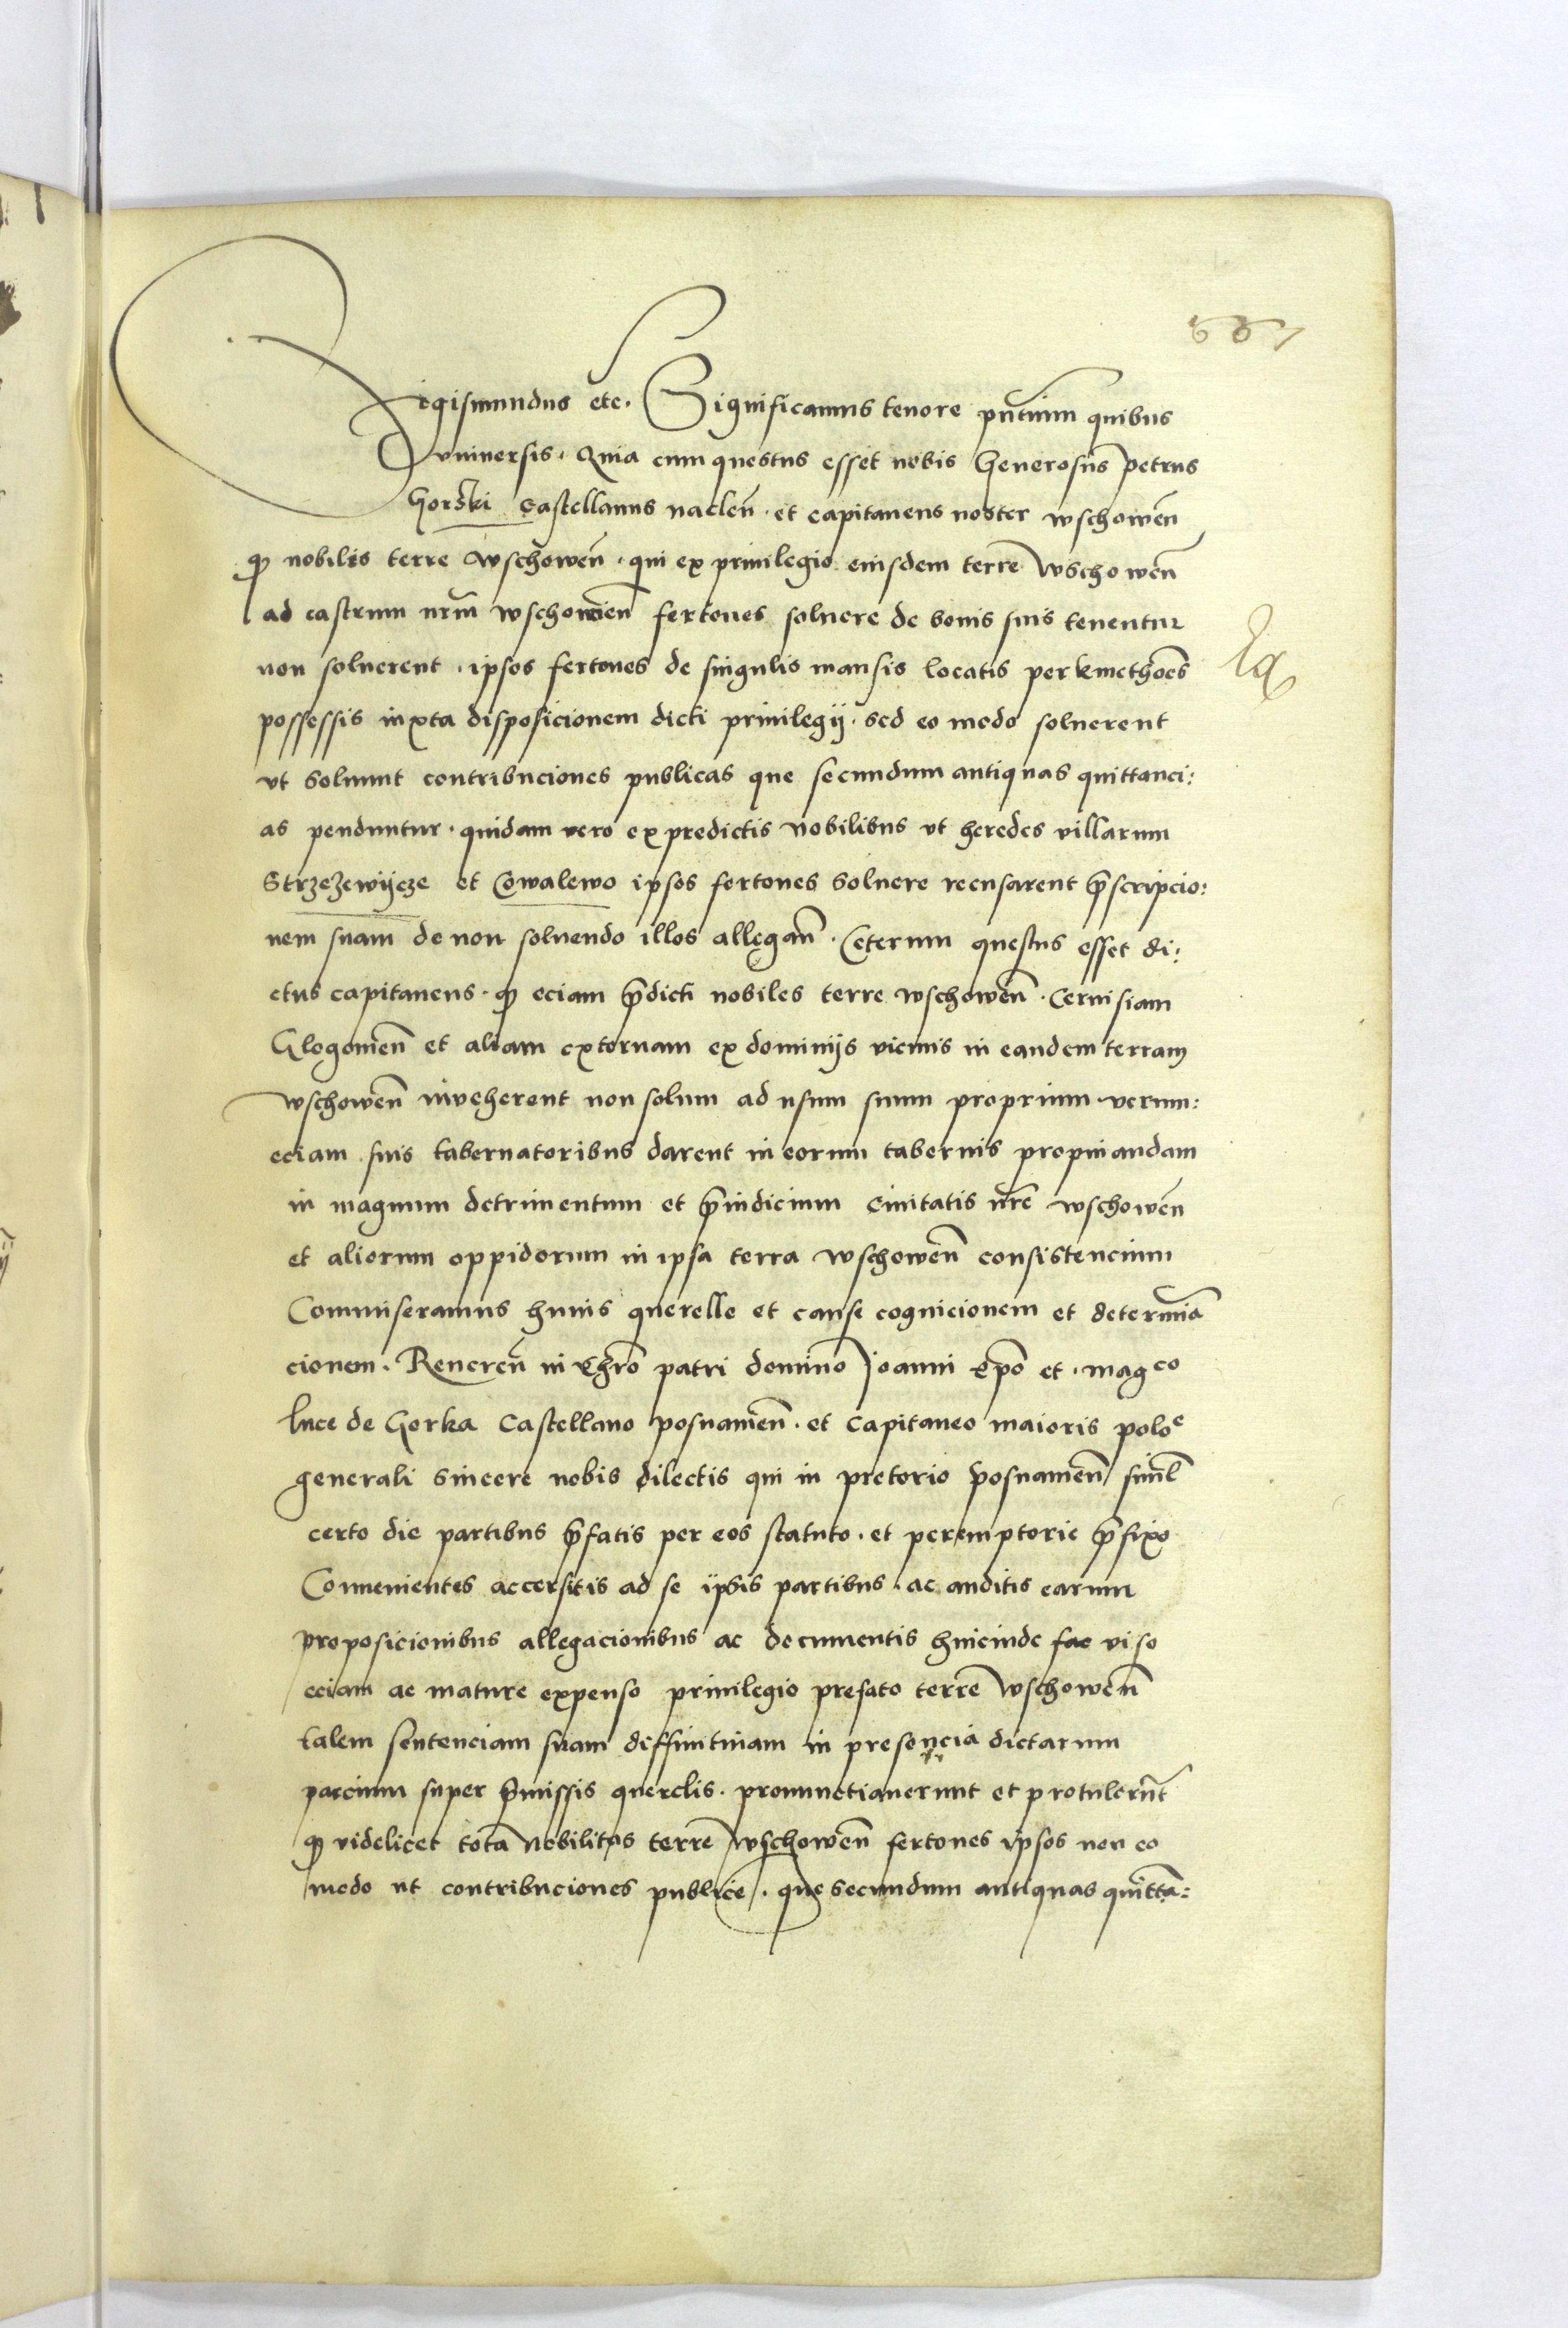 557
Sigismundus etc. Significamus tenore pñtium quibus
vniuersis. Quia cum questus esset nobis Generosus Petrus
Gorski Castellanus nacleñ. et capitaneus noster wschoweñ
qͦ nobiles terre Wschoweñ. qui ex priuilegio eiusdem terre Wschoweñ
ad castrum nrm̃ wschowieñ fertones soluere de bonis suis tenentur
non soluerent. ipsos fertones de singulis mansis locatis per kmethoēs
possessis iuxta disposicionem dicti priuilegij. sed eo modo soluerent
vt soluunt contribuciones publicas que secundum antiquas quittanci:
as penduntur. quidam vero ex predictis nobilibus vt heredes villarum
Strzezewijcze et Cowalewo ipsos fertones soluere recusarent p̃scripcio:
nem suam de non soluendo illos allegañ. Ceterum questus esset di:
ctus capitaneus. qͦ eciam p̃dicti nobiles terre wschoweñ. Ceruisiam
Glogouieñ et aliam externam ex dominijs vicinis in eandem terram
wschoweñ inveherent non solum ad usum suum proprium verum:
eciam suis tabernatoribus darent in eorum tabernis propinandam
in magnum detrimentum et p̃iudicium Ciuitatis nr̃e wschoweñ
et aliorum oppidorum in ipsa terra wschoweñ consistencium
Commiseramus huius querelle et cause cognicionem et determiã
cionem. Reuereñ in Chro̅ patri domino Joanni Ep̃o et. mag^co
luce de Gorka Castellano posnanieñ. et Capitaneo maioris polo^e
generali sincere nobis dilectis qui in pretorio posnanieñ simul
certo die partibus p̃fatis per eos statuto. et peremptorie p̃fixo
Conuenientes accersitis ad se ipsis partibus. ac auditis earum
proposicionibus allegacionibus ac documentis hincinde fac viso
eciam ac mature expenso priuilegio prefato terre Wschoweñ
talem sentenciam suam diffinitiuam in presencia dictarum
parcium super p̃missis querelis. pronunctiauerunt et protulerũt
qͦ videlicet tota Nobilitas terre Wschoweñ fertones ipsos non eo
modo ut contribuciones publice. que secundum antiquas quittã: